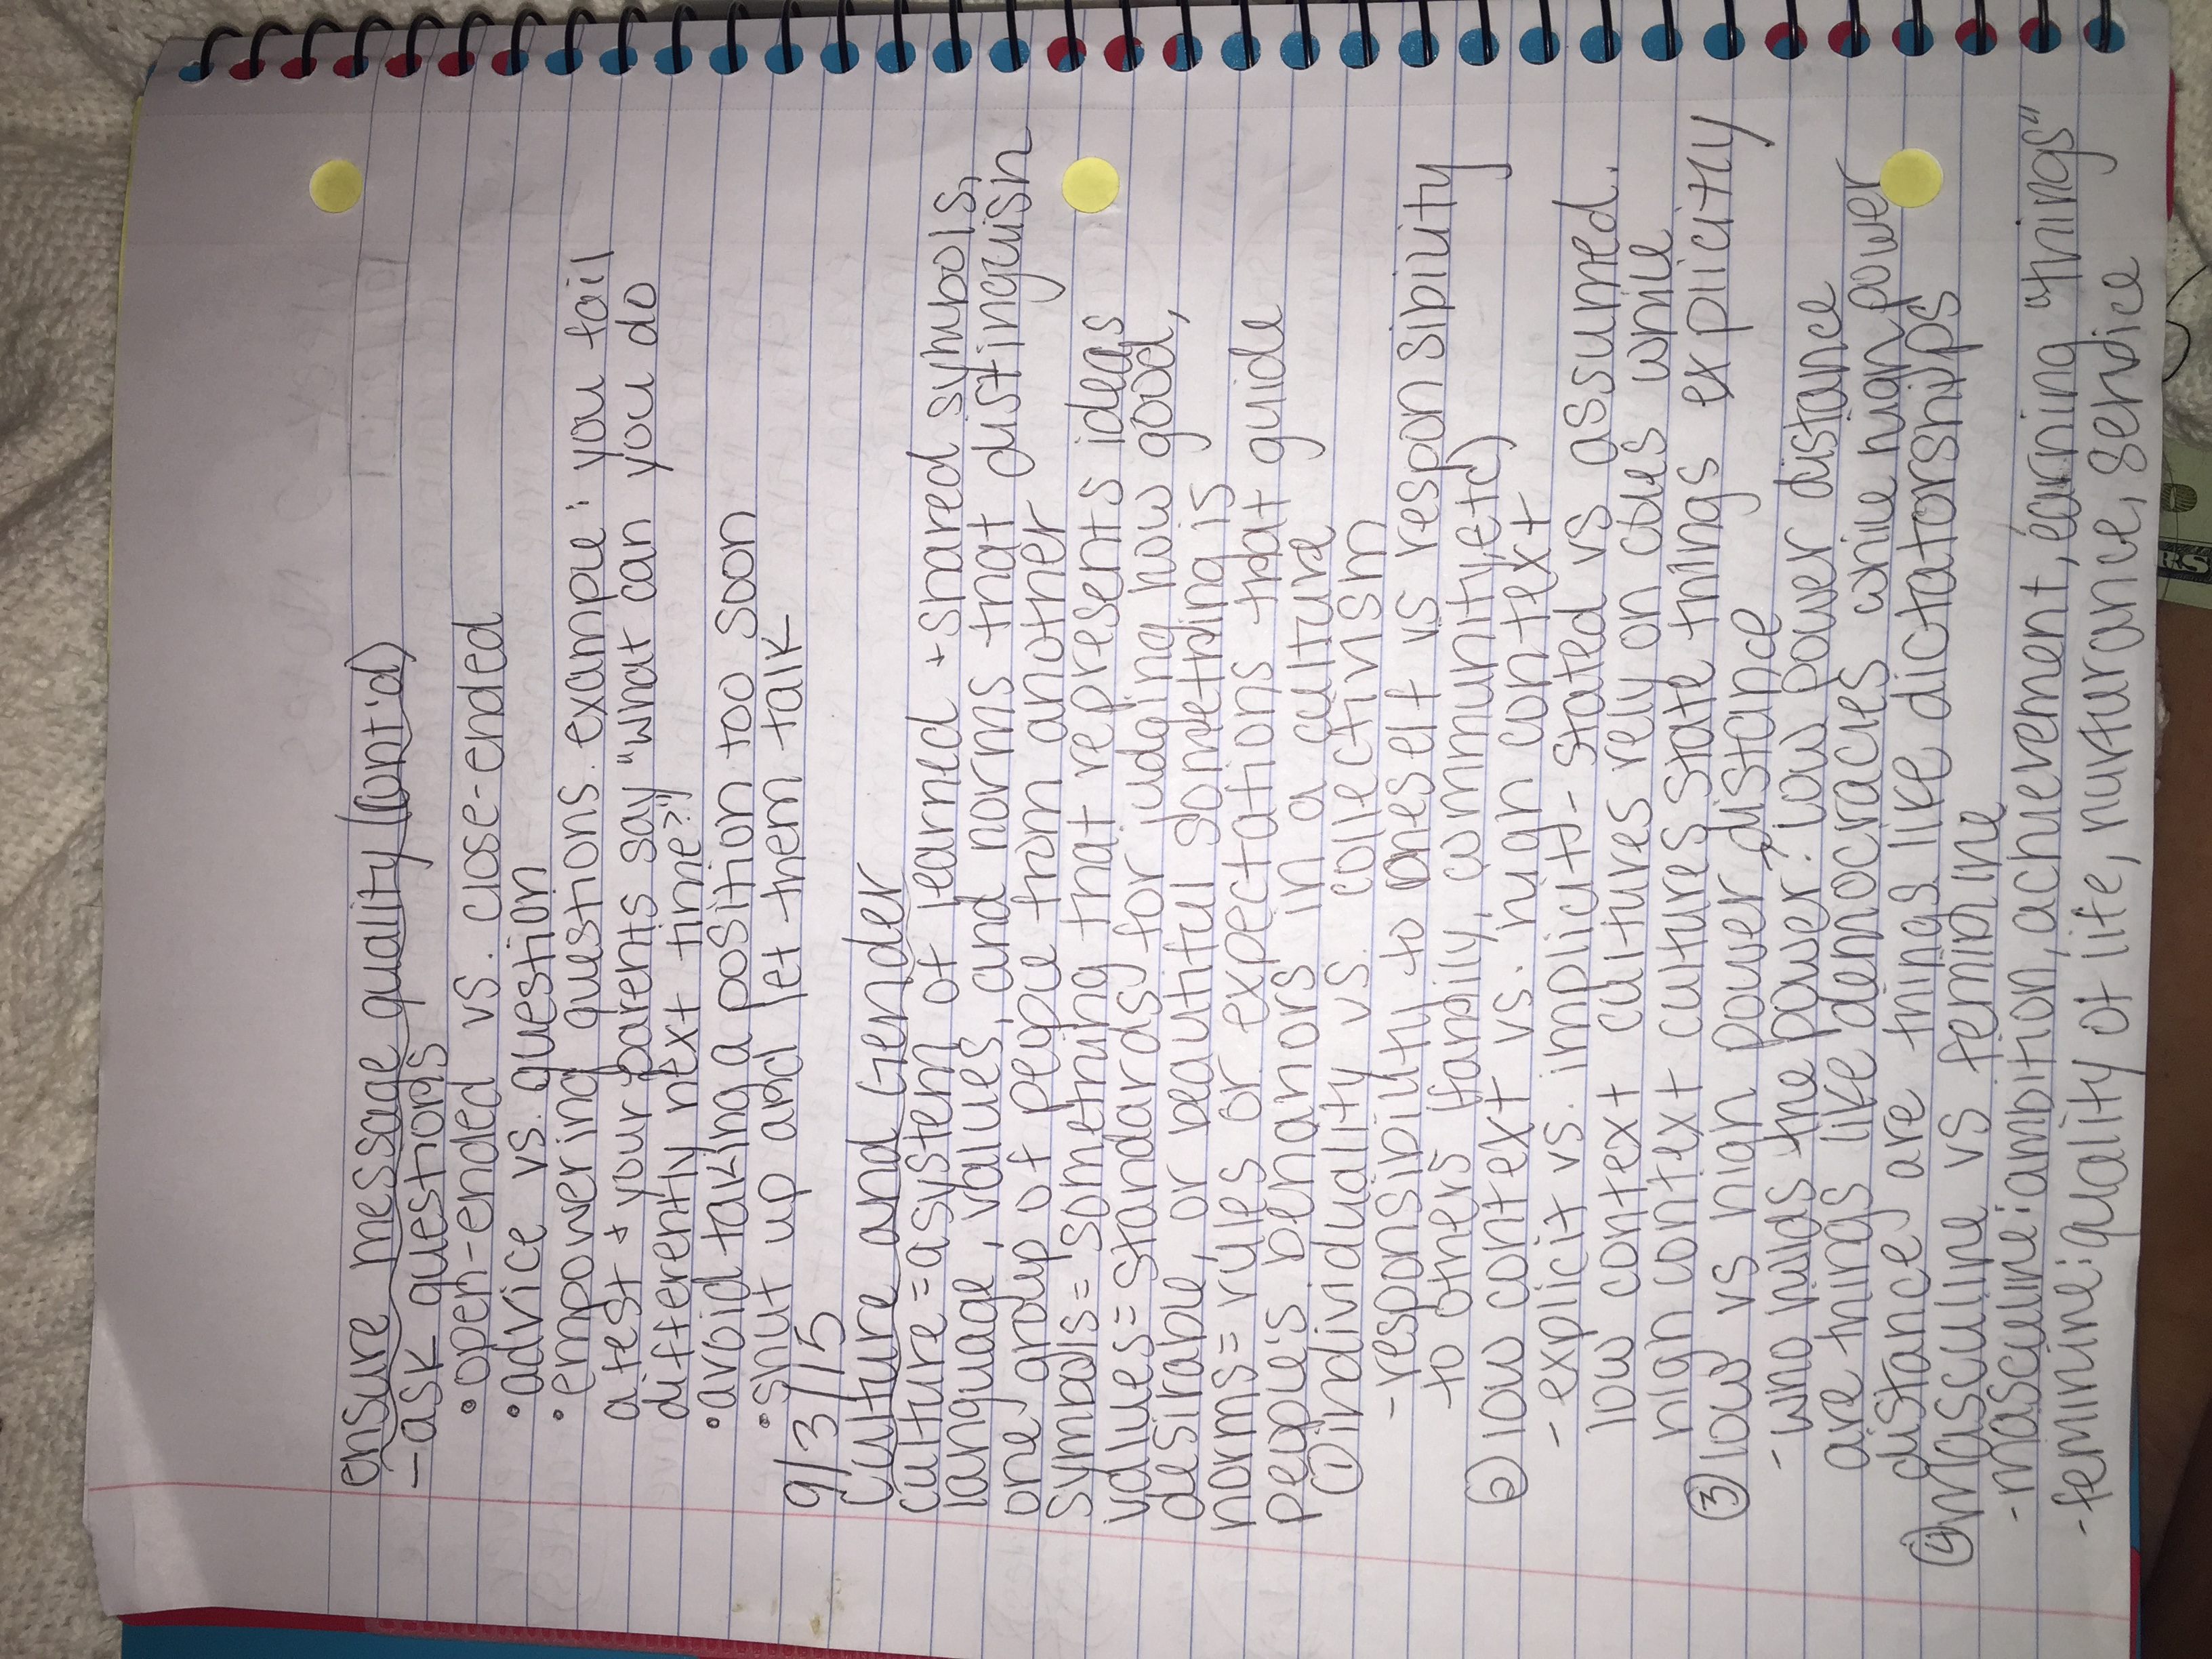 ensure message quality (cont'd)
- ask questions
• open-ended vs. close-ended
• advice vs. question
• empowering questions. example: you fail
a test + your parents say "what can you do
differently next time?"
• avoid taking a position too soon
• shut up and let them talk
9/3/15
Culture and Gender
culture = a system of learned + shared symbols,
language, values, and norms that distinguish
one group of people from another
symbols = something that represents ideas
values = standards for judging how good,
desirable, or beautiful something is
norms = rules or expectations that guide
people's behaviors in a culture
① individuality vs. collectivism
- responsibility to oneself vs responsibility
to others (family, community, etc)
② low context vs. high context
- explicit vs. implicit - stated vs assumed.
low context cultures rely on cues while
high context cultures state things explicitly
③ low vs high power distance
- who holds the power? low power distance
are things like democracies while high power
distance are things like dictatorships
④ Masculine vs feminine
- masculine: ambition, achievement, earning "things"
- feminine: quality of life, nurturance, service